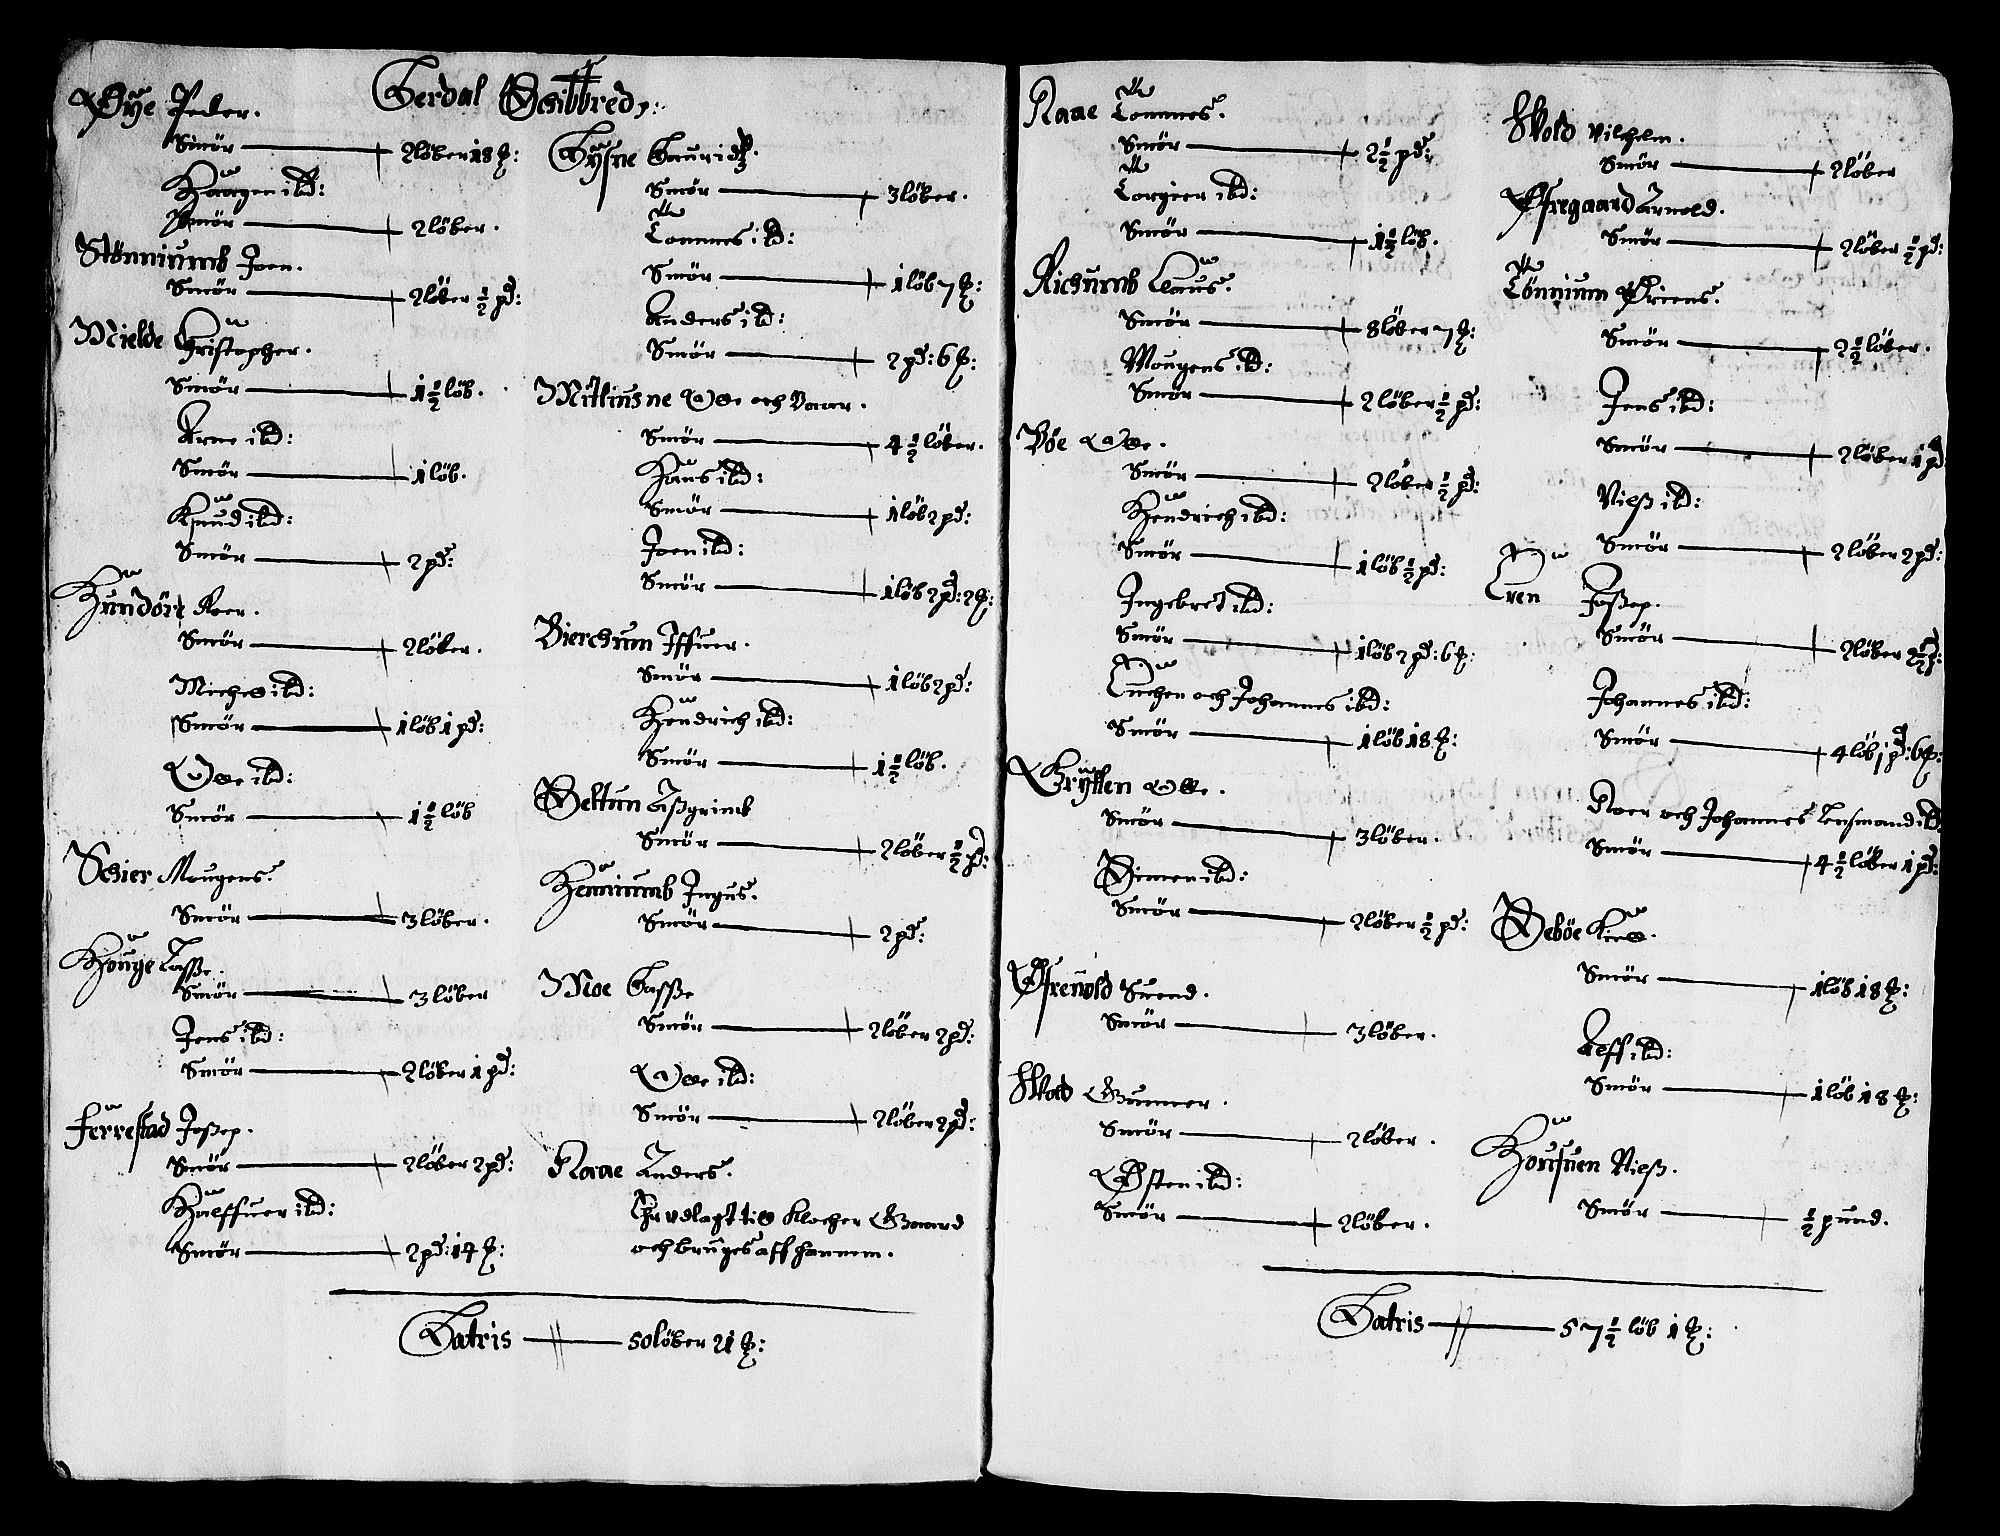 Lerdal Schibbred,:
Øÿe Peder.
Smör — 2löber 18 ℔:
Haagen ibd:
Smör — 2löber.
Stönniumb Joen.
Smör — 2löber ½ pd:
Mielde Christopher.
Smör — 1½ löb.
Arne ibd:
Smör — 1 löb.
Knud ibd:
Smör — 2 pd:
Hundöri Roer.
Smör — 2löber.
Michel ibd:
Smör — 1löb 1 pd:
Olle ibd:
Smör — 1½ löb
Schier Mougens.
Smör — 3löber.
Houge Lasse.
Smör — 3 löber
Jens ibd:
Smör — 2löber 1 pd:
Ferrestad Joßep.
Smör — 2löber 2 pd:
Halffuer ibd:
Smör — 2 pd: 14 ℔:
Lÿsne Lauridz.
Smör — 3löber.
Tommes ibd:
Smör — 1löb 7 ℔:
Anders ibd:
Smör — 2 pd: 6 ℔:
Mitliusne Olle och Baar.
Smör — 4½ löber.
Hans ibd:
Smör — 1löb 2 pd:
Joen ibd:
Smör — 1löb 2 pd: 2 ℔:
Bierchum Iffuer.
Smör — 1löb 2 pd:
Hendrich ibd:
Smör — 1½ löb.
Geltun Aßgrimb
Smör — 2löber ½ pd:
Hemiumb Ingus.
Smör — 2 pd:
Moe Lasse
Smör — 2löber 2 pd:
Olle ibd:
Smör — 2löber 2 pd:
Raae Anders.
Er vdlagt till Klocher Gaard
och bruges aff hannem.
Latris — 50löber 21 ℔:
Raae Tommes.
Smör — 2½ pd:
Torgier ibd:
Smör — 1½ löb.
Richumb Claus.
Smör — 8löber 7 ℔:
Mougens ibd:
Smör — 2löber ½ pd:
Böe Olle.
Smör — 2löber ½ pd:
Hendrich ibd:
Smör — 1löb ½ pd:
Ingebret ibd:
Smör — 1löb 2 pd: 6 ℔:
Euchen och Johannes ibd:
Smör — 1löb 18 ℔:
Grÿtten Olle.
Smör — 3löber.
Simen ibd:
Smör — 2löber ½ pd:
Øfreuold Suend.
Smör — 3löber.
Wold Gunner.
Smör — 2löber.
Østen ibd:
Smör — 2löber.
Wold Vilhelm.
Smör — 2löber
Øfregaard Arnold.
Smör — 2löber ½ pd:
Tönnium Øriens.
Smör — 2½ löber.
Jens ibd:
Smör — 2löber 1 pd
Nielß ibd:
Smör — 2löber 2 pd:
Eren Joßep.
Smör — 2löber 2½ p:
Johannes ibd:
Smör — 4 löb 1 pd: 6 ℔:
Roer och Johannes Lensmand ibd
Smör — 4½ löber 1 pd:
Seböe Kield.
Smör — 1löb 18 ℔:
Aleff ibd:
Smör — 1löb 18 ℔:
Housuen Nielß.
Smör — ½ pund.
Latris — 57½ löb 1 ℔: